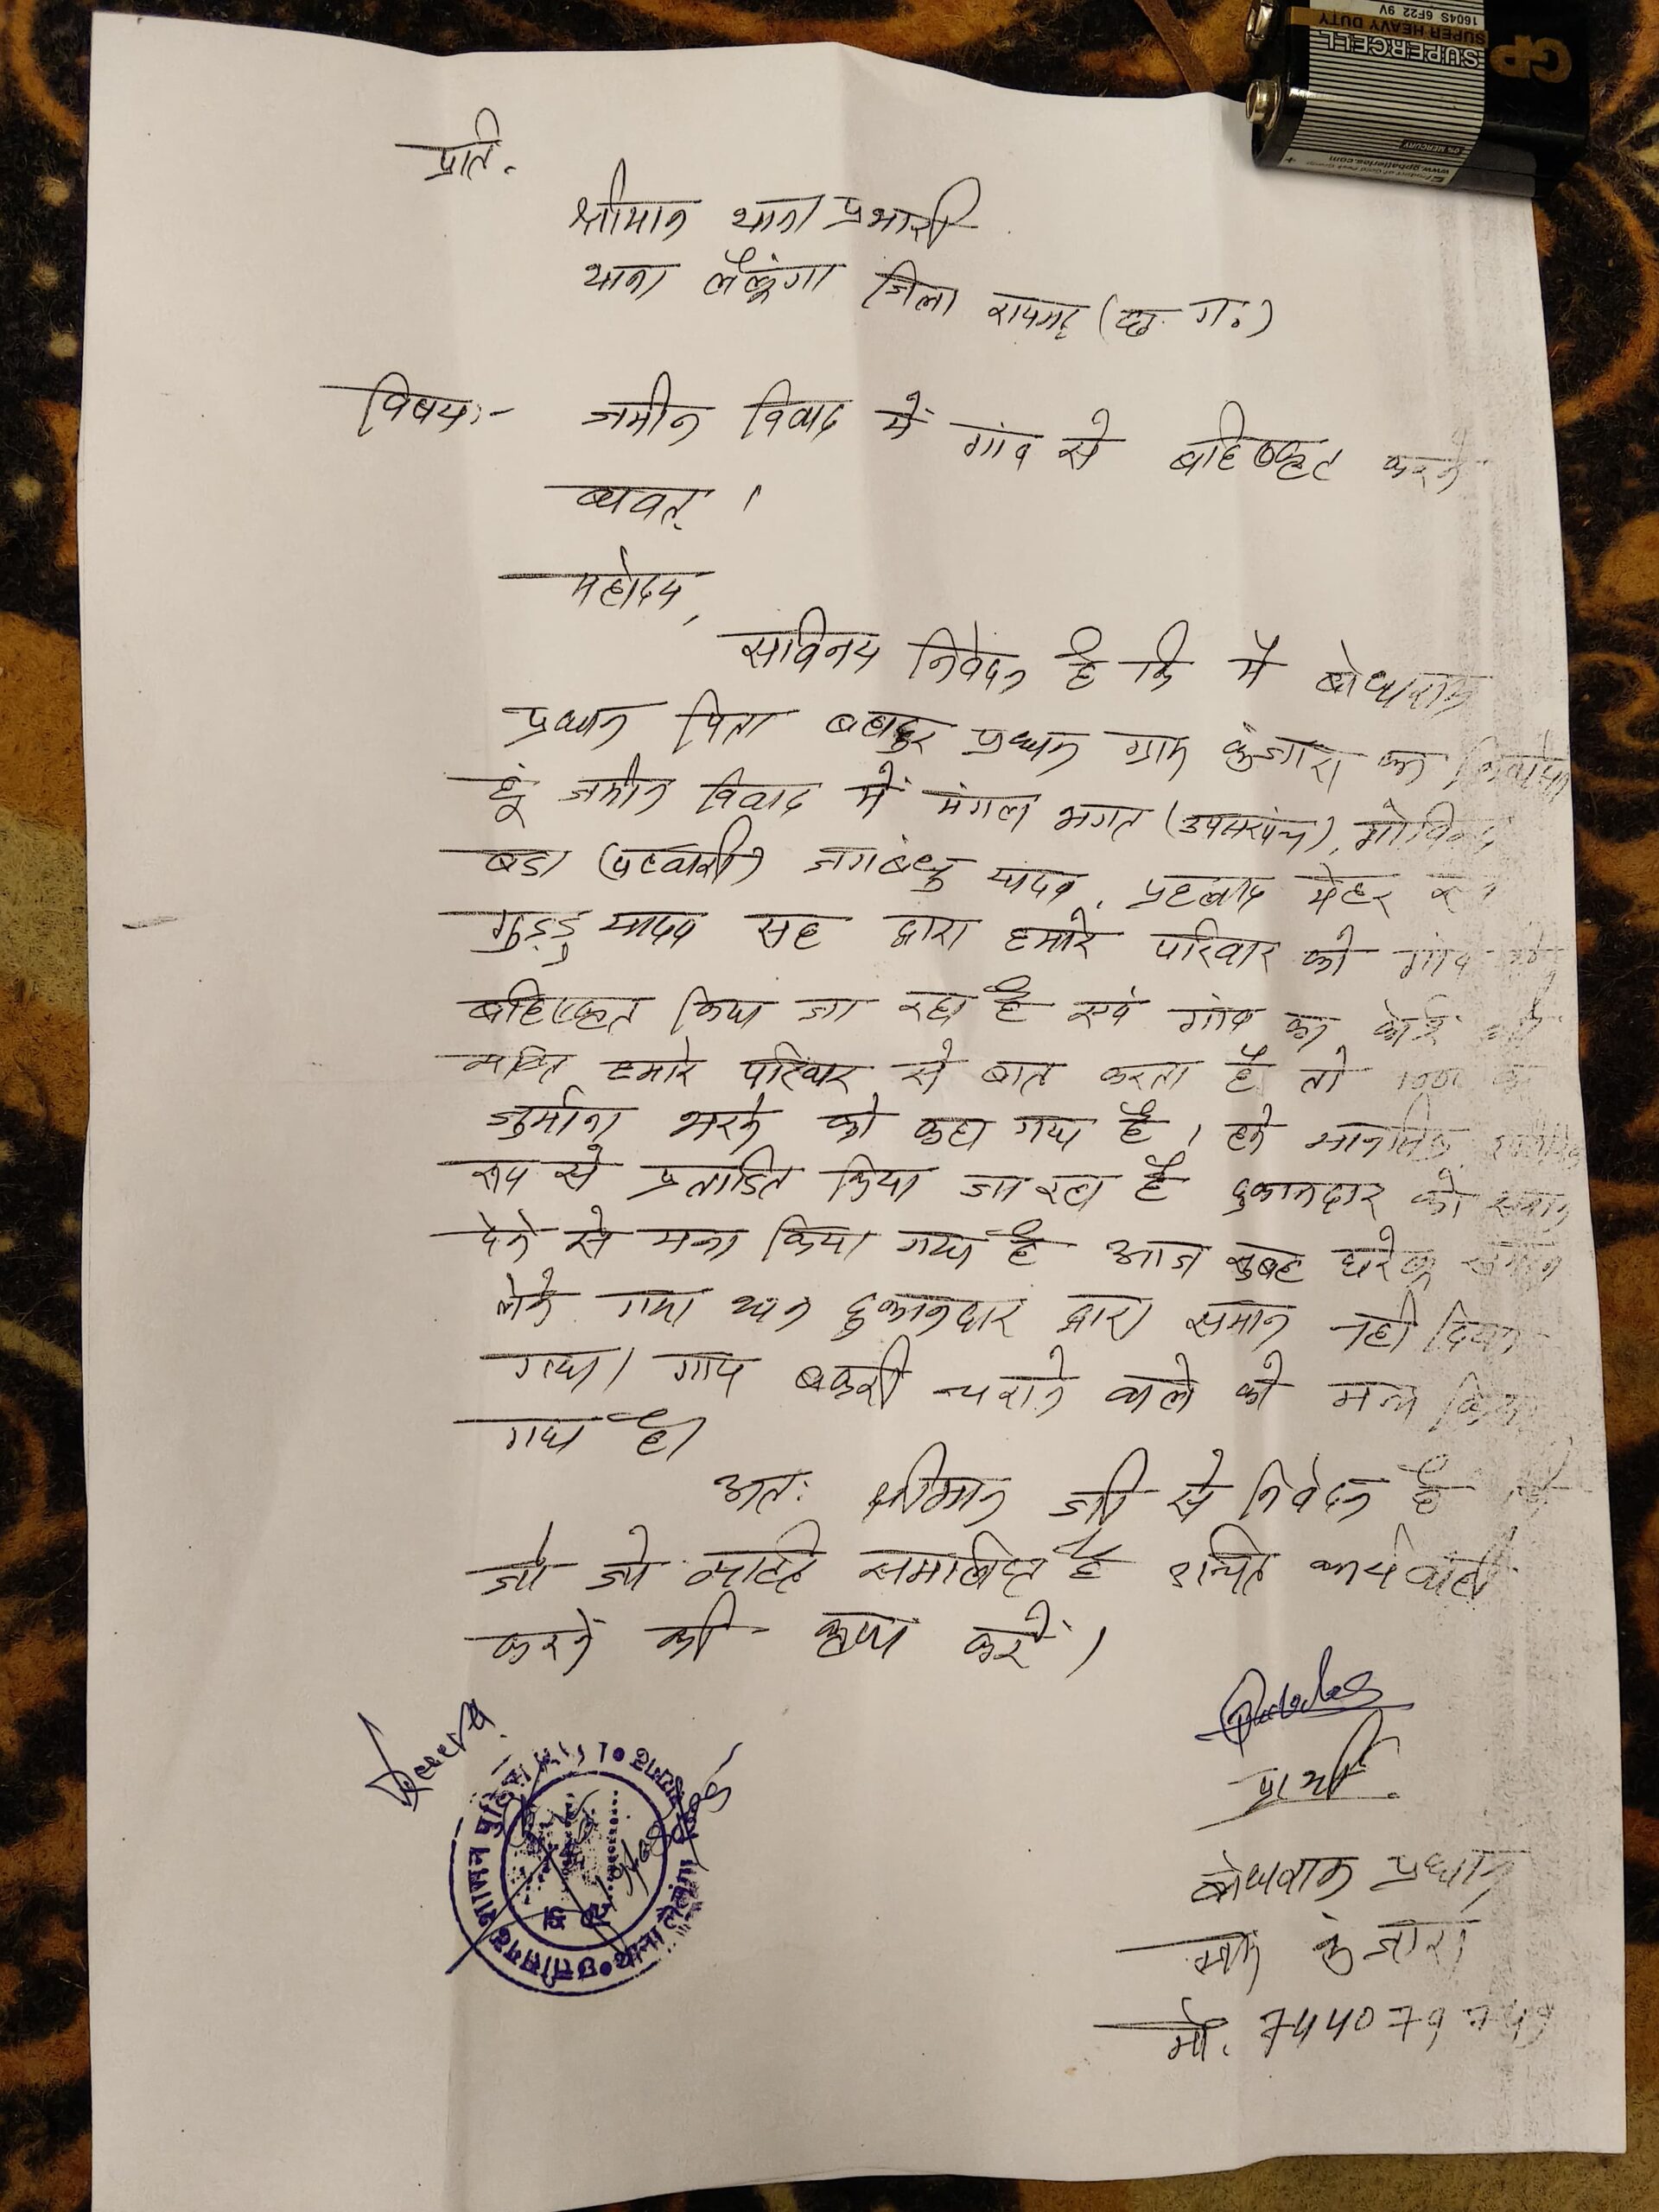 GP
SUPERCELL
SUPER HEAVY DUTY
1604S 6F22 9V
0% MERCURY
www.gpbatteries.com
प्रति.
श्रीमान थाना प्रभारी
थाना लैलूंगा जिला रायगढ़ (छ. ग.)
विषय:- जमीन विवाद में गांव से बहिष्कृत करने
बावत् ।
महोदय,
सविनय निवेदन है कि मैं बोधराम
प्रधान पिता बहादुर प्रधान ग्राम कुंजारा का निवासी
हूं जमीन विवाद में मंगल भगत (उपसरपंच), गोविन्द
बड़ा (पटवारी) जगबंधु यादव, प्रहलाद मेहर एवं
गुड्डु यादव सह द्वारा हमारे परिवार को गांव से
बहिष्कृत किया जा रहा है एवं गांव का कोई भी
व्यक्ति हमारे परिवार से बात करता है तो
जुर्माना भरने को कहा गया है। हमें मानसिक
रूप से प्रताडित किया जा रहा है दुकानदार को समान
देने से मना किया गया है आज सुबह घरेलू समान
लेने गया था दुकानदार द्वारा समान नही दिया
गया। गाय बकरी चराने वाले को मना किया
गया है।
अतः श्रीमान जी से निवेदन है कि
जो जो व्यक्ति समालिप्त है उचित कार्यवाही
करने की कृपा करें।
प्रार्थी
बोधराम प्रधान
ग्राम कुंजारा
मो. 744079
थाना लैलूंगा
छत्तीसगढ़ शासन पुलिस